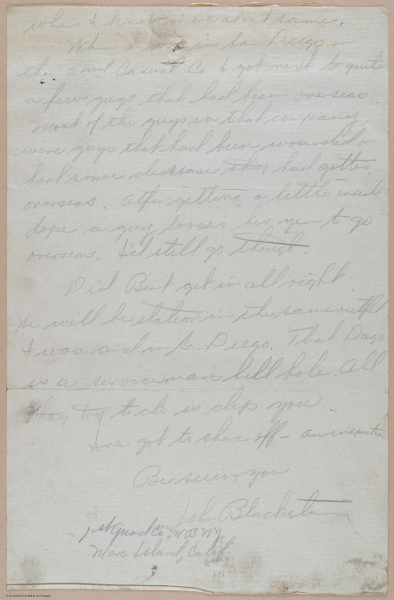 when I
When I was in San Diego in
the 2nd Casual Co I got next to quite
a few guys that had been overseas.
Most of the guys in that company
were guys that had been wounded or
had some disease they had gotten
overseas. After getting a little inside
dope a guy looses his yen to go
overseas. I'd still go though.
Did Bert get in all right.
He will be station in the same outfit
I was and in S. Diego. That Dago
is a serviceman hell hole. All
they try to do is clip you.
Ive got to shove off - an inspection
Be seeing you
John Blackstein
1st Guard Co MB NY
Mare Island, Calif